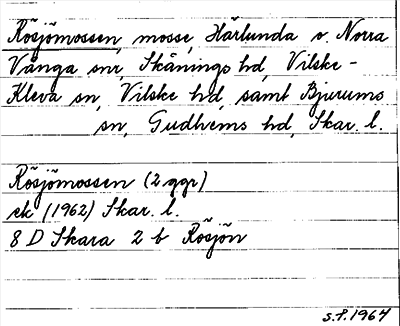 Rösjömossen, mosse, Härlunda o. Norra
Vånga snr, Skånings hd, Vilske-
Kleva sn, Vilske hd, samt Bjurums
sn, Gudhems hd, Skar. l.
Rösjömossen (2 ggr)
ek (1962) Skar. l.
8 D Skara 2 b Rösjön
S.P. 1964